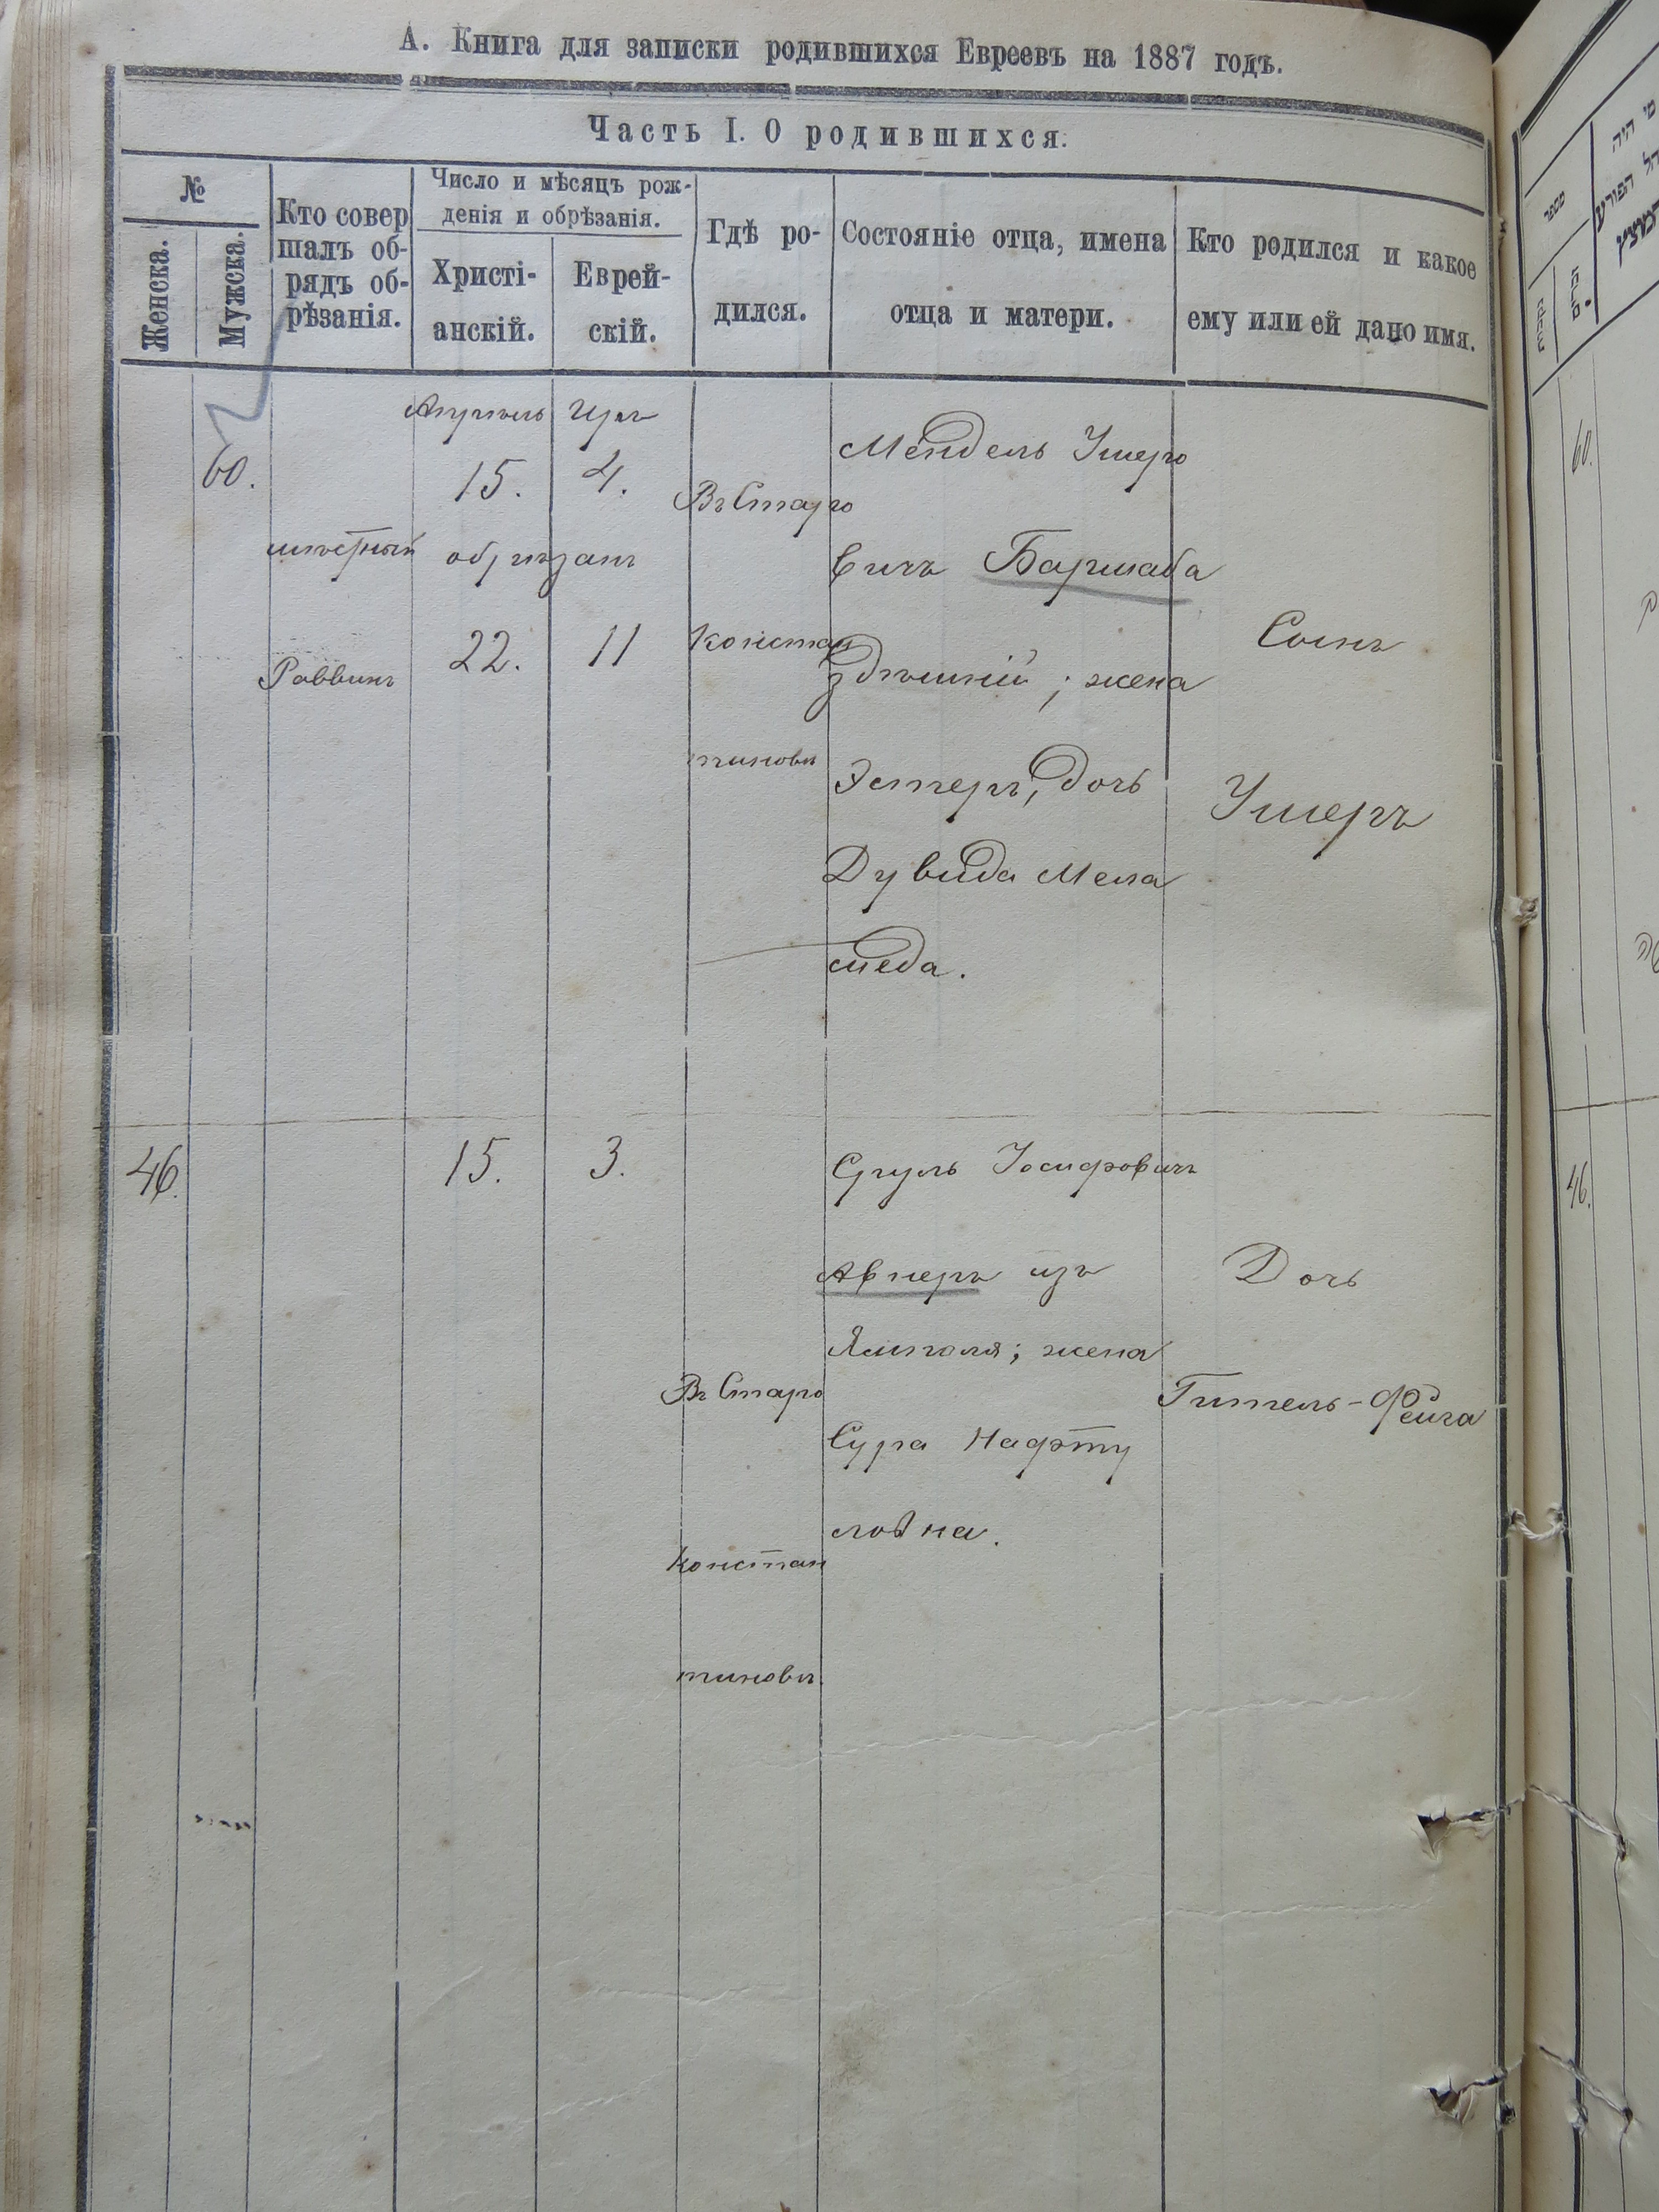 А. Книга для записки родившихся Евреевъ на 1887 годъ.
Часть I. О родившихся.
№
Женска.
Мужска.
Кто совер
шалъ об-
рядъ об-
рѣзанія.
Число и мѣсяцъ рож-
денія и обрѣзанія.
Христі-
анскій.
Еврей-
скій.
Гдѣ ро-
дился.
Состояніе отца, имена
отца и матери.
Кто родился и какое
ему или ей дано имя.
60.
Раввинъ
Апрѣль
15.
4.
обрѣзанъ
22.
11
Въ Старо
констан
тиновѣ
Мендель Ушеро
вичъ Баршаба
здѣшній; жена
Эстеръ, дочь
Дувида Мела
меда.
Сынъ
Ушеръ
46.
15.
3.
Въ Старо
констан
тиновѣ
Сруль Іосифовичъ
Авнеръ изъ
Ямполя; жена
Сура Нафту
ловна.
Дочь
Гитель-Фейга
מי היה
מספר
60.
46.